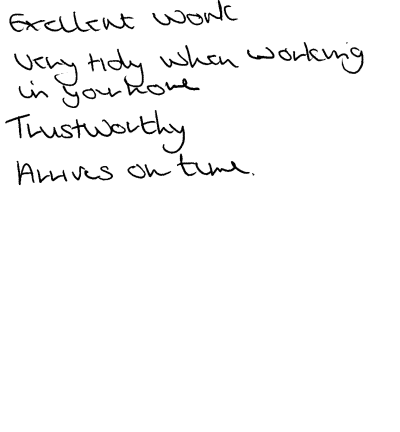 Excellent work
Very tidy when working
in your home
Trustworthy
Arrives on time.